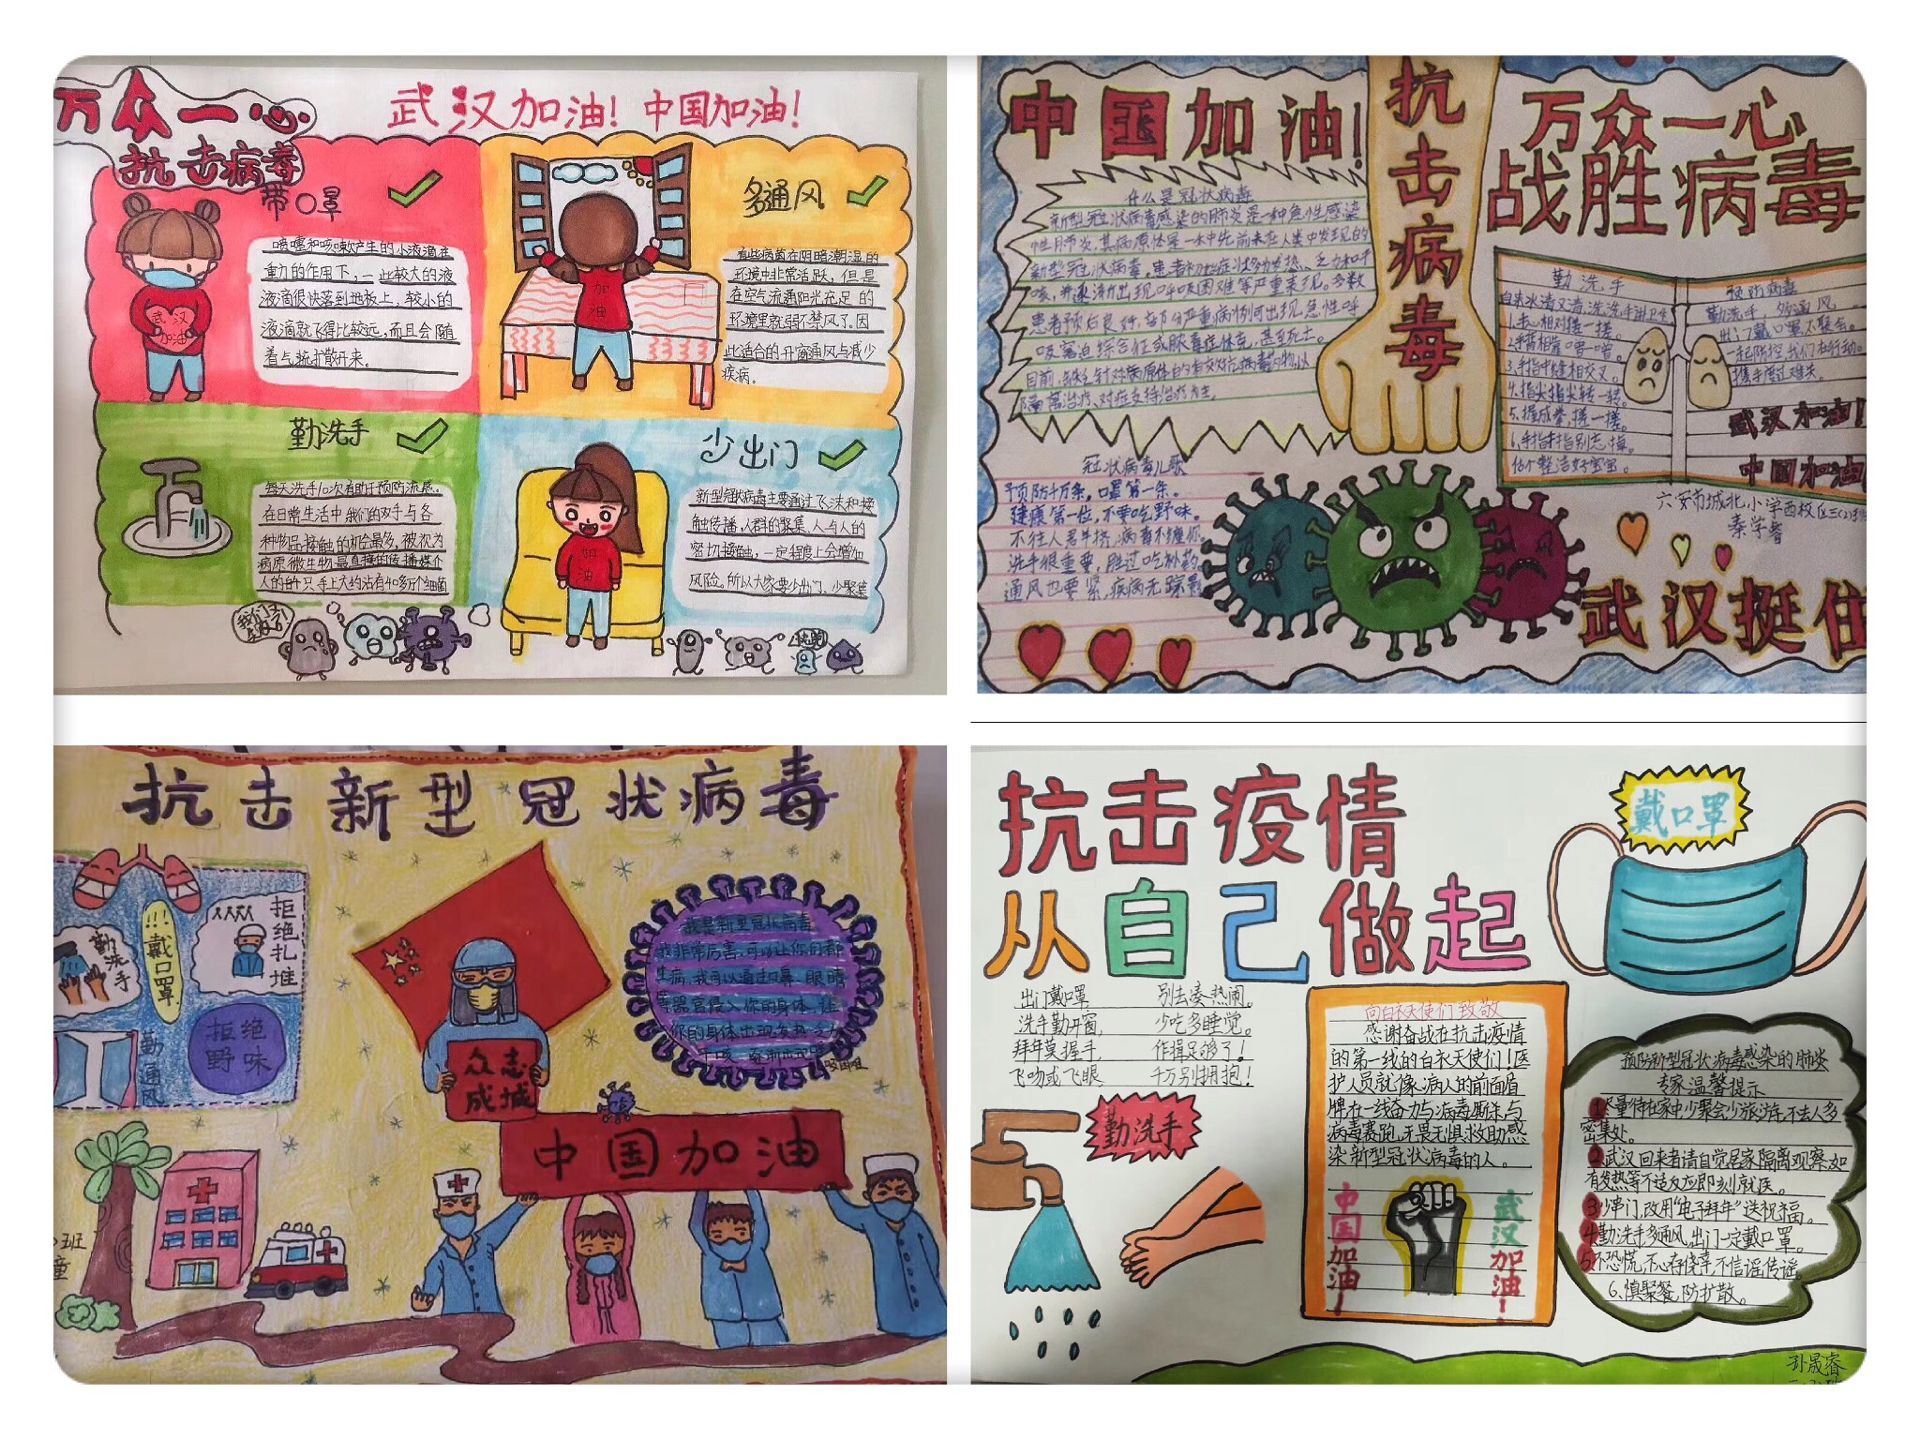 万众一心
抗击病毒
武汉加油！中国加油！
带口罩
喷嚏和咳嗽产生的小液滴在
重力的作用下，一些较大的液
液滴很快落到地板上，较小的
液滴就飞得比较远，而且会随
着气流扩散开来。
武汉
加油
多通风
有些病菌在阴暗潮湿的
环境中非常活跃，但是
在空气流通阳光充足的
环境里就弱不禁风了。因
此适合的开窗通风与减少
疾病。
加
油
勤洗手
每天洗手10次有助于预防流感。
在日常生活中我们的双手与各
种物品接触的机会最多，被视为
病原微生物最直接的传播媒介
人的一只手上大约沾有40多万个细菌
少出门
新型冠状病毒主要通过飞沫和接
触传播，人群的聚集，人与人的
密切接触，一定程度上会增加
风险。所以大家要少出门，少聚集
加
油
中国加油！
抗击病毒
万众一心
战胜病毒
什么是冠状病毒
新型冠状病毒感染的肺炎是一种急性感染
性肺炎，其病原体是一种先前未在人类中发现的
新型冠状病毒，患者初始症状多为发热、乏力和干
咳，并逐渐出现呼吸困难等严重表现。多数
患者预后良好，部分严重病例可出现急性呼
吸窘迫综合征或脓毒症休克，甚至死亡。
隔离治疗、对症支持治疗为主。
勤洗手
1.手心相对搓一搓。
2.手背相靠
3.手指中缝相交叉。
4.指尖指尖转一转。
5.握成拳，搓一搓。
6.手指手指别忘掉。
预防病毒
勤洗手，多通风。
出门戴口罩不聚会。
一起防控，我们在行动。
携手度过难关。
武汉加油！
中国加油
冠状病毒儿歌
预防千万条，口罩第一条。
健康第一位，不要吃野味。
不往人多半挤，病毒不缠你。
洗手很重要，胜过吃补药
通风也要紧，疾病无踪影
六安市城北小学西校区三(2)班
秦学睿
武汉挺住
抗击新型冠状病毒
勤洗手
!!!戴口罩
拒绝扎堆
勤通风
拒绝
野味
我是新型冠状病毒
我非常厉害，可以让你们都
生病，我可以通过口鼻、眼睛
等器官侵入你的身体，让
你的身体出现发热、乏力
众志
成城
中国加油
班
童
抗击疫情
从自己做起
戴口罩
出门戴口罩 别去凑热闹。
洗手勤开窗， 少吃多睡觉。
拜年莫握手， 作揖足够了！
飞吻或飞眼 千万别拥抱！
勤洗手
向白衣天使们致敬
感谢奋战在抗击疫情
的第一线的白衣天使们！医
护人员就像病人的前面盾
牌在一线奋力与病毒厮杀与
病毒赛跑，无畏无惧救助感
染新型冠状病毒的人。
中国加油！
武汉加油！
预防新型冠状病毒感染的肺炎
专家温馨提示
1.尽量待在家中少聚会少旅游，不去人多
密集处。
2.武汉回来者请自觉居家隔离观察，如
有发热等不适反应即刻就医。
3.少串门，改用“电子拜年”送祝福。
4.勤洗手多通风，出门一定戴口罩。
5.不恐慌，不心存侥幸，不信谣传谣。
6.慎聚餐，防扩散。
孙晟睿